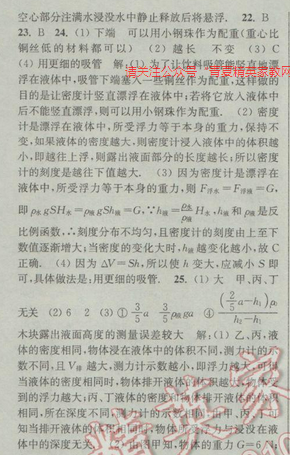 空心部分注满水浸没水中静止释放后将悬浮. 22. B
23. B 24. (1)下端 可以用小钢珠作为配重(重心比
铜丝低的材料都可以) (2)越长 不变 (3)C
(4)用更细的吸管 解:(1)为了让饮料吸管能竖直地漂
请关注公众号
浮在液体中,吸管下端塞入一些铜丝作为配重,这样做的
目的是让密度计竖直漂浮在液体中;若将它放入液体中
后不能竖直漂浮,则可以用小钢珠作为配重. (2)密度
计是漂浮在液体中,所受浮力等于本身的重力,保持不
变,如果液体的密度越大,则密度计浸入液体中的体积越
小,即越往上浮,则露出液面部分的长度越长;所以密度
计的刻度是越往下值越大. (3)因为密度计是漂浮在
液体中,所受浮力等于本身的重力,则 F浮水=F浮液=G,
即ρ水gSH水=ρ液gSh液=G,∵h液=ρ水/ρ液 H水,h液和ρ液是反
比例函数,∴刻度分布不均匀,且密度计的刻度由上至下
数值逐渐增大;当密度的变化大时,h液越变化越小,故C
正确. (4)因为ΔV=Sh,所以使h变大,应减小S即
可,具体做法是:用更细的吸管. 25. (1)大 甲、丙、丁
无关 (2)6 2 (3)①3/5 a ③3/5 ρ油ga ④(2/5 a-h1)ρ0/(h2-h1)
木块露出液面高度的测量误差较大 解:(1)乙、丙,液
体的密度相同,物体浸在液体中的体积不同,测力计的示
数不同,且V排越大,测力计示数越小,即浮力越大,可得
当液体的密度相同时,物体排开液体的体积越大,物体受
到的浮力越大;丙、丁液体的密度和物体排开液体的体积
相同,所在深度不同,测力计的示数相同,由甲、丙、丁可
知当排开液体的体积相同时,物体所受浮力与浸没在液
体中的深度无关. (2)由图甲知,物体的重力G=6 N;